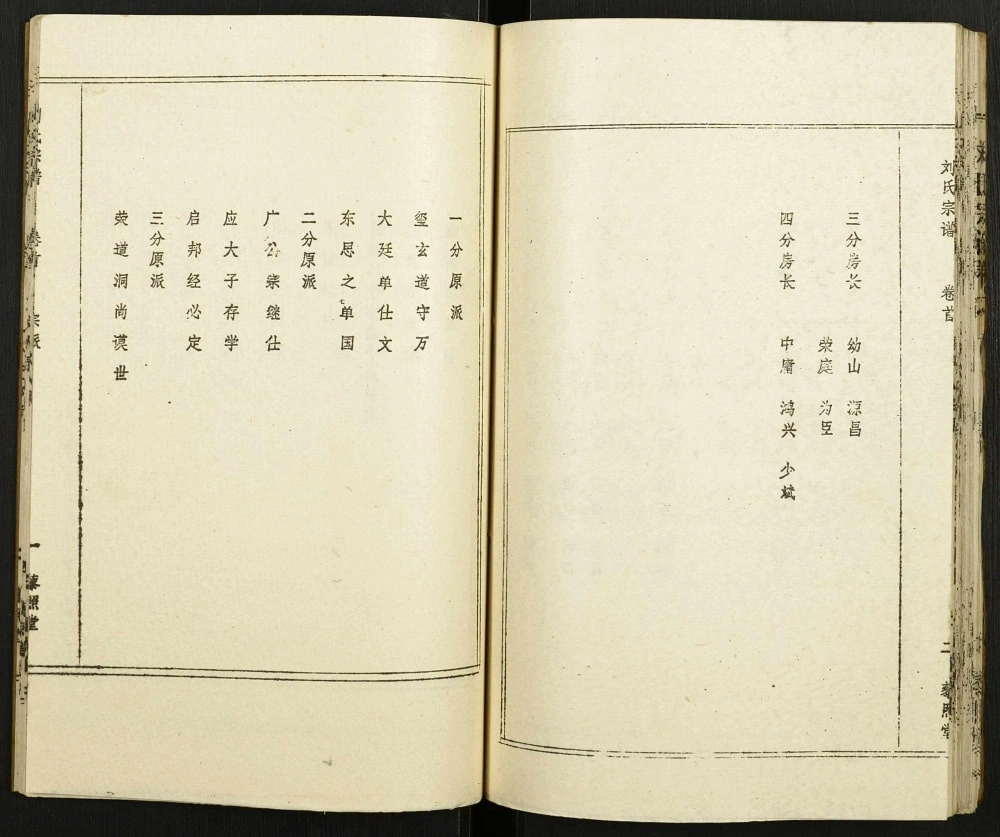 刘氏宗谱 卷首 二 藜照堂
三分房长 幼山 源昌
荣庭 为臣
四分房长 中庸 鸿兴 少斌
一分原派
玺玄道守万
大廷单仕文
东思之单国
二分原派
广公宗继仕
应大子存学
启邦经必定
三分原派
荣道洞尚谟世
宗谱 卷首 宗派 一 藜照堂